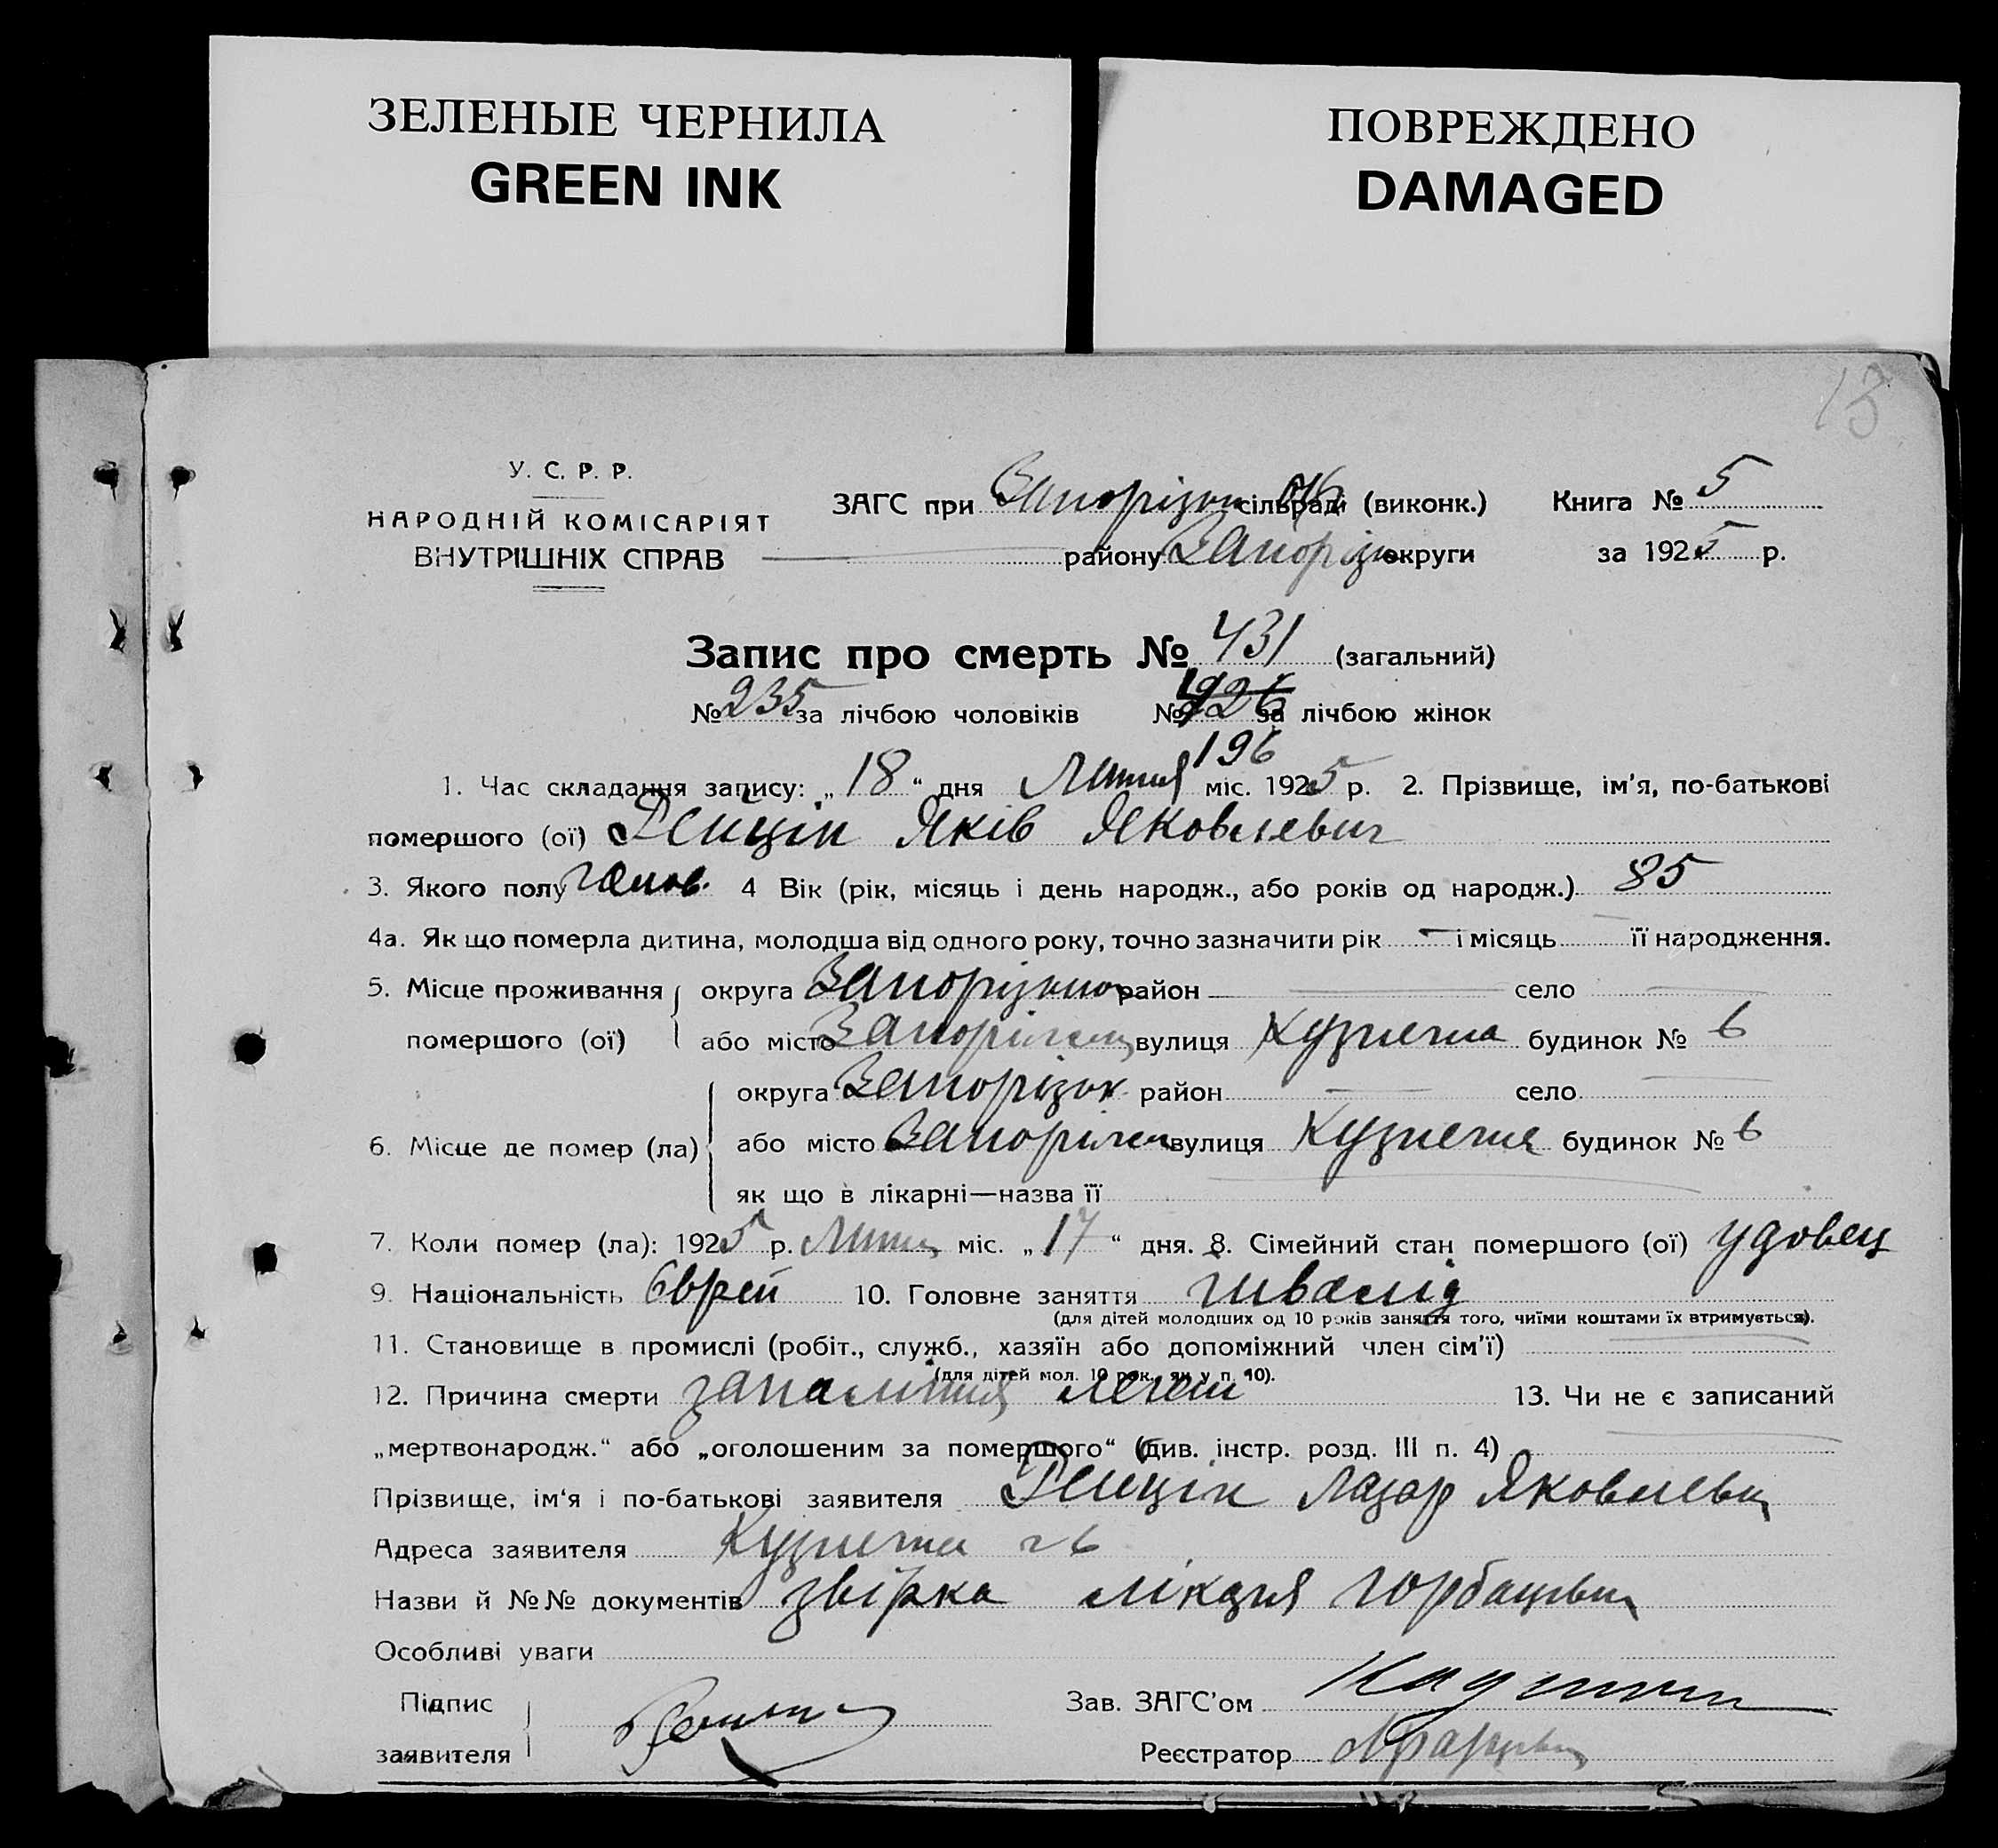 ЗЕЛЕНЫЕ ЧЕРНИЛА
GREEN INK
ПОВРЕЖДЕНО
DAMAGED
13
У. С. Р. Р.
НАРОДНІЙ КОМІСАРІЯТ
ВНУТРІШНІХ СПРАВ
ЗАГС при Запорізьк сільраді (виконк.) Книга № 5
району Запорізь округи за 1925 р.
Запис про смерть № 431 (загальний)
№ 235 за лічбою чоловіків № за лічбою жінок
196
1. Час складання запису: „18“ дня Липня міс. 1925 р. 2. Прізвище, ім'я, по-батькові
помершого (ої) Яків Яковлевич
3. Якого полу 4 Вік (рік, місяць і день народж., або років од народж.) 85
4а. Як що померла дитина, молодша від одного року, точно зазначити рік — і місяць її народження.
5. Місце проживання округа район — село —
помершого (ої) або місто Запоріжжя вулиця Кузнечна будинок № 6
округа Запорізьк район — село —
6. Місце де помер (ла) або місто Запоріжжя вулиця Кузнечна будинок № 6
як що в лікарні—назва її
7. Коли помер (ла): 1925 р. Липня міс. „17“ дня. 8. Сімейний стан помершого (ої) удовец
9. Національність Єврей 10. Головне заняття інвалід
(для дітей молодших од 10 років заняття того, чиїми коштами їх втримується).
11. Становище в промислі (робіт., служб., хазяїн або допоміжний член сім'ї)
(для дітей мол. 10 рок., як у п. 10).
12. Причина смерти запалення легень 13. Чи не є записаний
„мертвонародж.“ або „оголошеним за помершого“ (див. інстр. розд. III п. 4)
Прізвище, ім'я і по-батькові заявителя Лазар Яковлевич
Адреса заявителя Кузнечна 6
Назви й №№ документів лікаря
Особливі уваги
Підпис
заявителя
Зав. ЗАГС'ом
Реєстратор